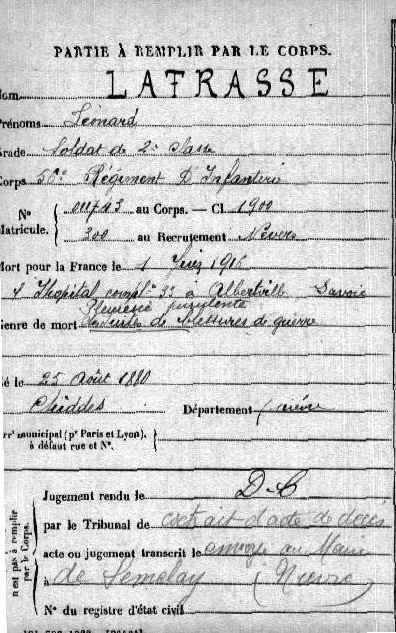 PARTIE À REMPLIR PAR LE CORPS.
Nom LATRASSE
Prénoms Léonard
Grade Soldat de 2e Classe
Corps 56e Régiment D'Infanterie
N° 011743 au Corps. — Cl. 1900
Matricule. 300 au Recrutement Nevers
Mort pour la France le 1 1916
à l'hopital compl. 33 à Albertville Savoie
Pleurésie purulente
Genre de mort de blessures de guerre
Né le 25 Août 1880
Chiddes Département Nièvre
Arr' municipal (p' Paris et Lyon),
à défaut rue et N°.
n'est pas à remplir par le Corps.
Jugement rendu le D-C
par le Tribunal de extrait d'acte de décès
acte ou jugement transcrit le envoyé au Maire
à de Semelay (Nièvre)
N° du registre d'état civil